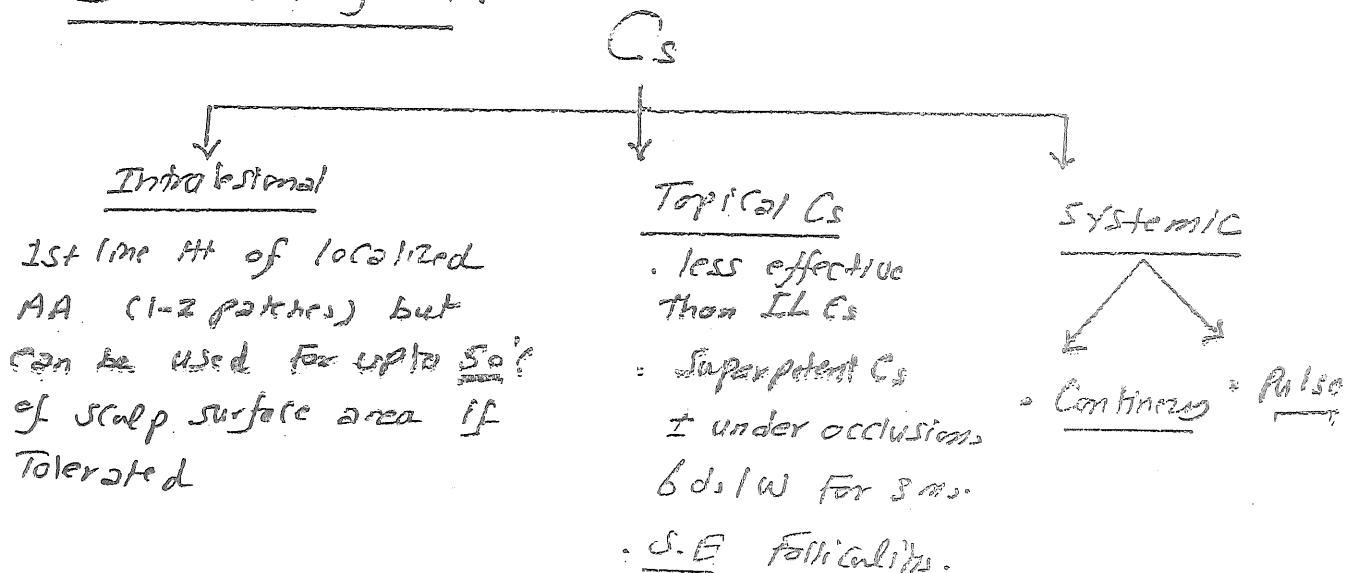 Cs
Intralesional
1st line ttt of localized
AA (1-2 patches) but
can be used for upto 50%
of scalp surface area if
Tolerated
Topical Cs
. less effective
Than IL Cs
. Superpotent Cs
± under occlusion,
6 ds/W For 3 ms.
. S.E Folliculitis.
Systemic
. Continous . Pulse